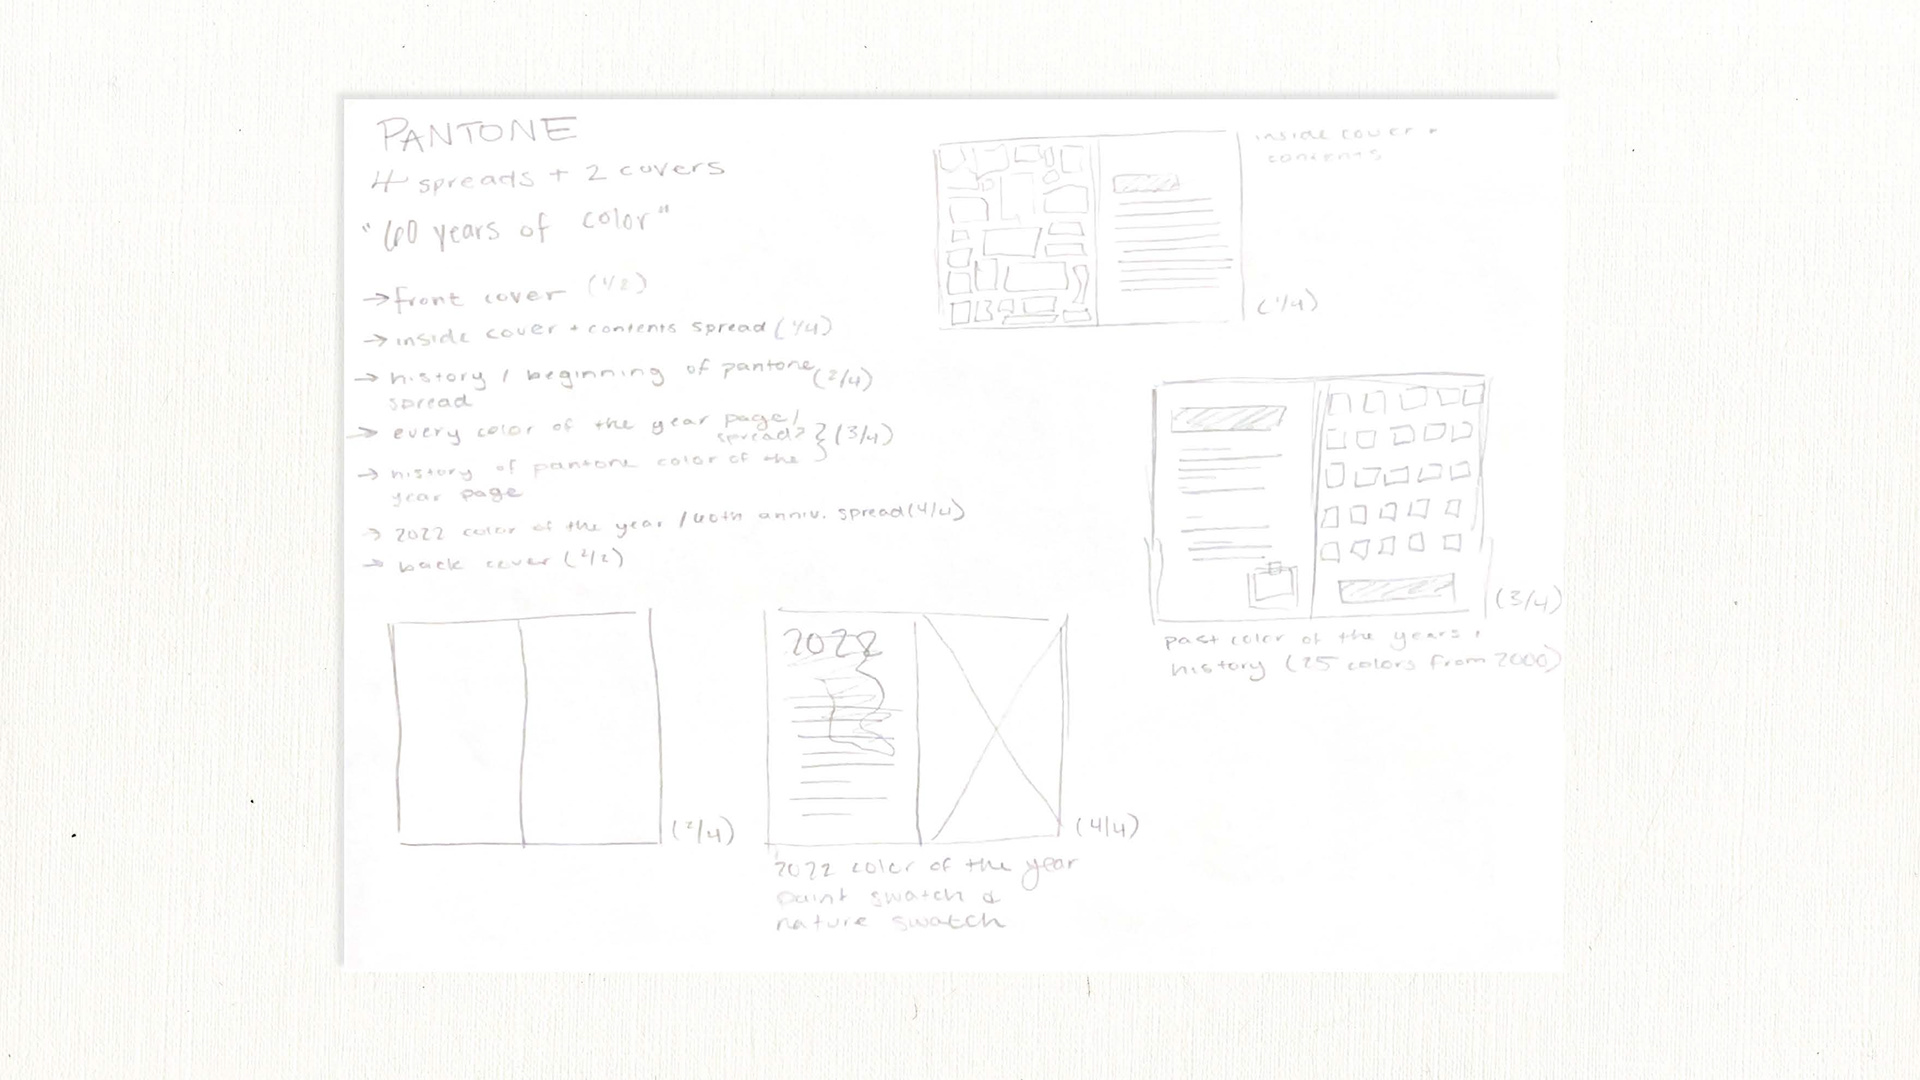 PANTONE
4 spreads + 2 covers
"60 years of color"
→ front cover (1/2)
→ inside cover + contents spread (1/4)
→ history / beginning of pantone (2/4)
spread
→ every color of the year page/
spread? } (3/4)
→ history of pantone color of the
year page
→ 2022 color of the year / 60th anniv. spread (4/4)
→ back cover (2/2)
inside cover +
contents
(1/4)
(3/4)
past color of the years +
history (25 colors from 2000)
(2/4)
2022
(4/4)
2022 color of the year
paint swatch &
nature swatch